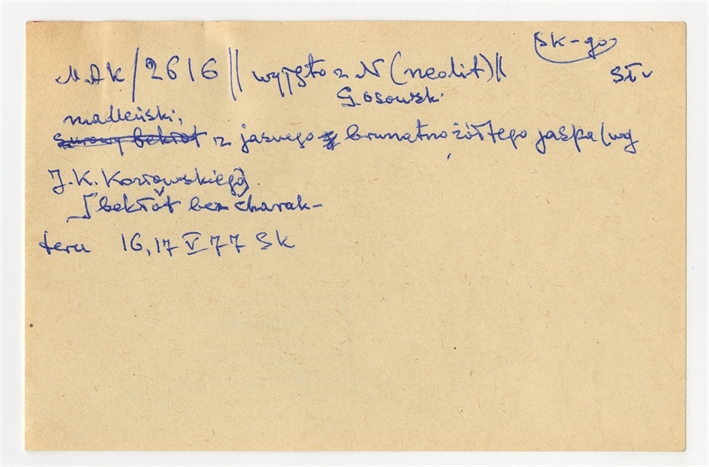 Sk-go
MAK/2616 || wyjęto z N (neolit) ||
St
Gosowski
madleński;
surowy bekłot z jasnego brunatno żółtego jaspa (wg
J.K. Kozłowskiego)
bekłot bez charak-
teru 16, 17 V 77 Sk